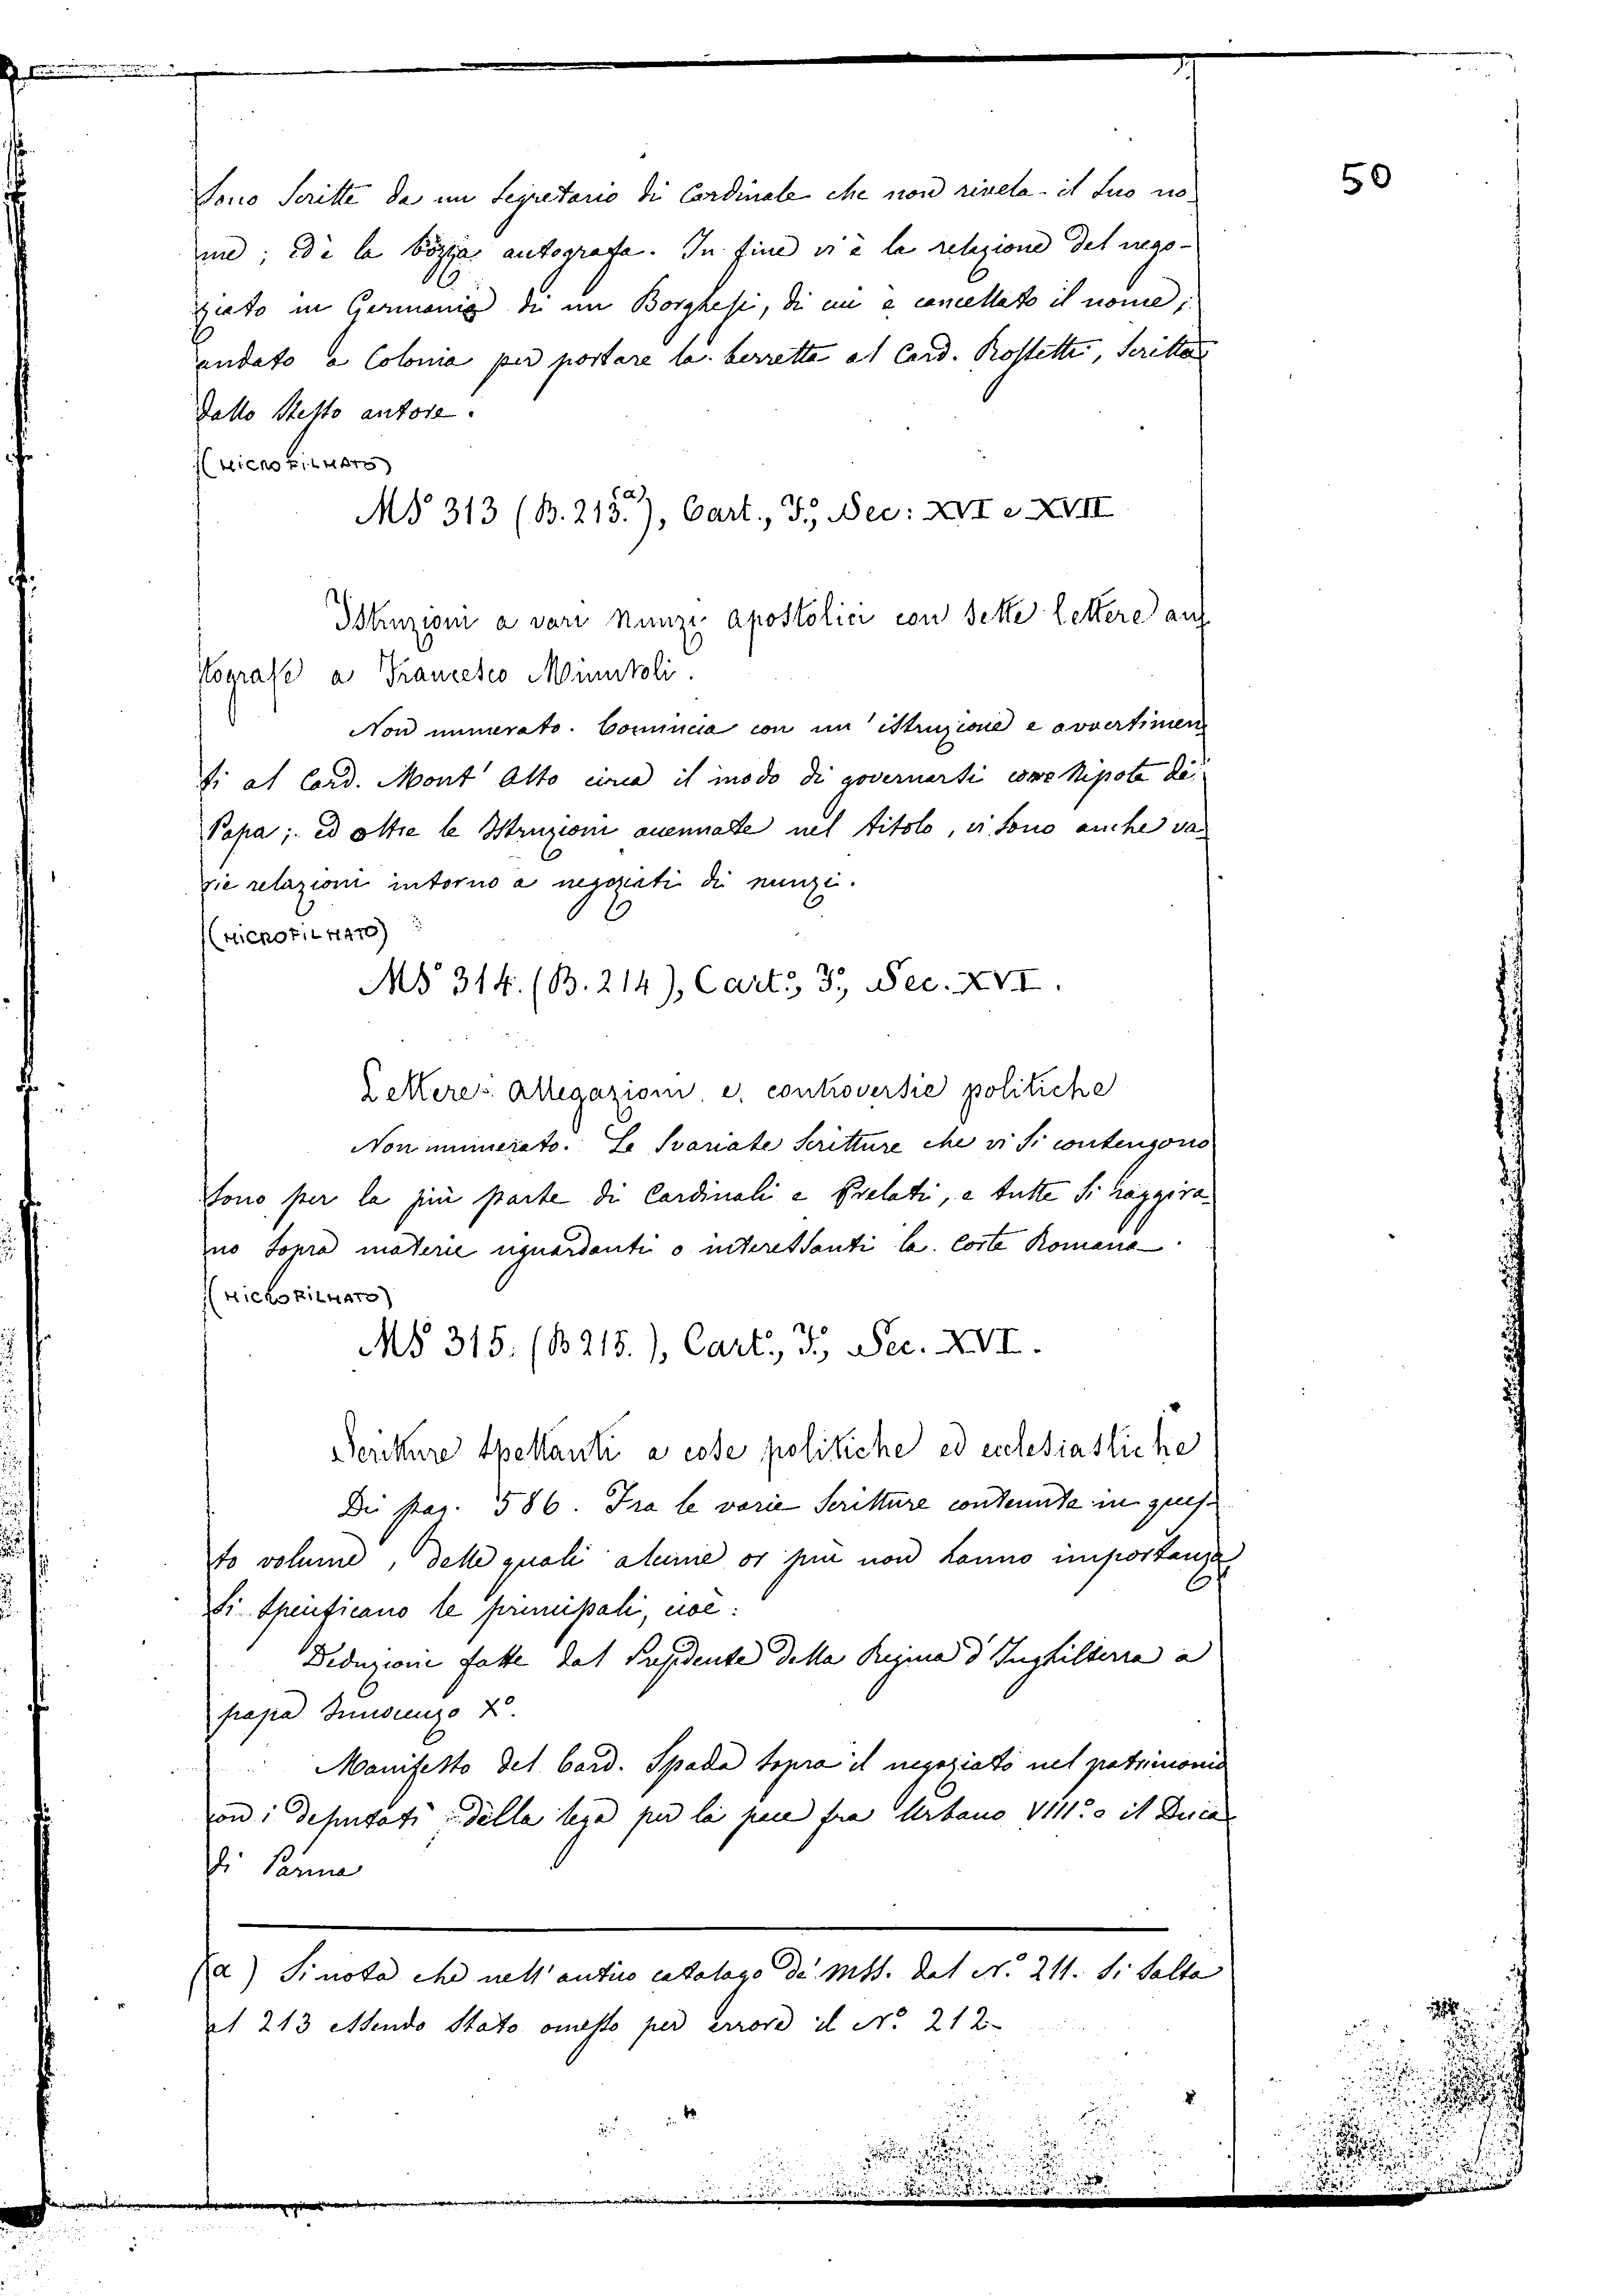 50
sono scritte da un segretario di Cardinale che non rivela il suo no
me; ed è la bozza autografa. In fine vi è la relazione del nego-
ziato in Germania di un Borghesi, di cui è cancellato il nome,
andato a Colonia per portare la berretta al Card. Rossetti, scritta
dallo stesso autore.
(MICROFILMATO)
MS 313 (B. 213.(a)), Cart., I., Sec: XVI e XVII
Istruzioni a vari Nunzi apostolici con sette lettere au
tografe a Francesco Minutoli.
Non numerato. Comincia con un' istruzione e avvertimen
ti al Card. Mont' Alto circa il modo di governarsi come Nipote del
Papa; ed oltre le Istruzioni accennate nel titolo, vi sono anche va
rie relazioni intorno a negoziati di nunzi.
(MICROFILMATO)
MS 314. (B. 214), Cart., I., Sec. XVI.
Lettere allegazioni e controversie politiche
Non numerato. Le svariate scritture che vi si contengono
sono per la più parte di Cardinali e Prelati, e tutte si raggira
no sopra materie riguardanti o interessanti la Corte Romana.
(MICROFILMATO)
MS 315. (B 215.), Cart., I., Sec. XVI.
Scritture spettanti a cose politiche ed ecclesiastiche
Di pag. 586. Fra le varie scritture contenute in ques
to volume, delle quali alcune or più non hanno importanza
si specificano le principali, cioè:
Deduzioni fatte dal Presidente della Regina d'Inghilterra a
papa Innocenzo X°.
Manifesto del Card. Spada sopra il negoziato nel patrimonio
con i deputati della lega per la pace fra Urbano VIII° e il Duca
di Parma
(a) Si nota che nell'antico catalogo de' mss. dal N° 211. si salta
al 213 essendo stato omesso per errore il N° 212.